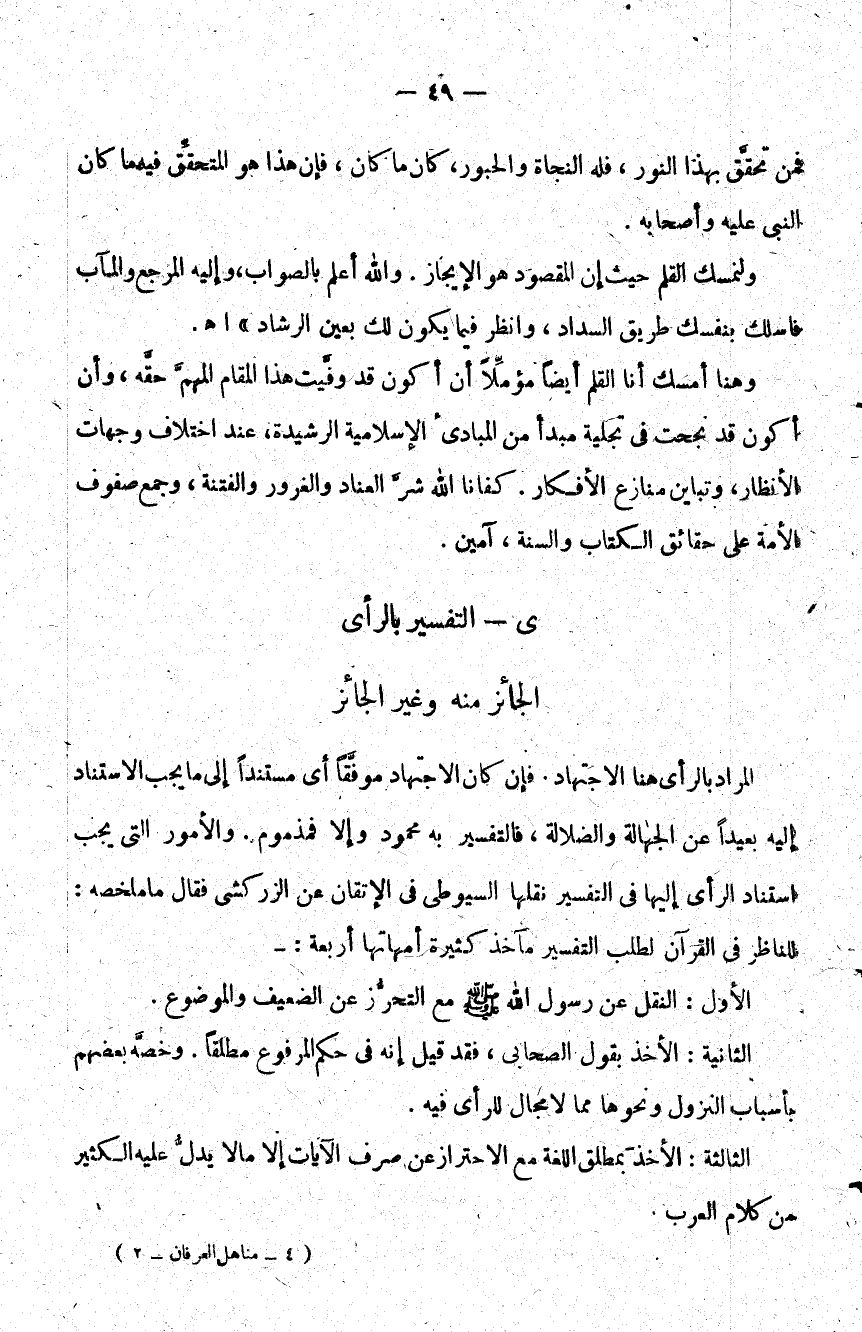 — ٤٩ —
فمن تحقَّق بهذا النور ، فله النجاة والحبور، كان ما كان ، فإن هذا هو المتحقِّق فيما كان
النبى عليه وأصحابه .
ولنمسك القلم حيث إن المقصود هو الإيجاز . والله أعلم بالصواب،وإليه المرجع والمآب
فاسلك بنفسك طريق السداد ، وانظر فيما يكون لك بعين الرشاد » ا ه .
وهنا أمسك أنا القلم أيضاً مؤمِّلاً أن أكون قد وفَّيت هذا المقام المهمَّ حقَّه ، وأن
أكون قد نجحت فى تجلية مبدأ من المبادىء الإسلامية الرشيدة، عند اختلاف وجهات
الأنظار، وتباين منازع الأفكار . كفانا الله شرَّ العناد والغرور والفتنة ، وجمع صفوف
الأمة على حقائق الكتاب والسنة ، آمين .
ى — التفسير بالرأى
الجائز منه وغير الجائز
المراد بالرأى هنا الاجتهاد . فإن كان الاجتهاد موفَّقاً أى مستنداً إلى ما يجب الاستناد
إليه بعيداً عن الجهالة والضلالة ، فالتفسير به محمود وإلا فمذموم . والأمور التى يجب
استناد الرأى إليها فى التفسير نقلها السيوطى فى الإتقان عن الزركشى فقال ماملخصه :
للناظر فى القرآن لطلب التفسير مآخذ كثيرة أمهاتها أربعة : –
الأول : النقل عن رسول الله ﷺ مع التحرُّز عن الضعيف والموضوع .
الثانية : الأخذ بقول الصحابى ، فقد قيل إنه فى حكم المرفوع مطلقاً . وخصَّه بعضهم
بأسباب النزول ونحوها مما لامجال للرأى فيه .
الثالثة : الأخذ بمطلق اللغة مع الاحتراز عن صرف الآيات إلا مالا يدلُّ عليه الكثير
من كلام العرب .
( ٤ – مناهل العرفان – ٢ )